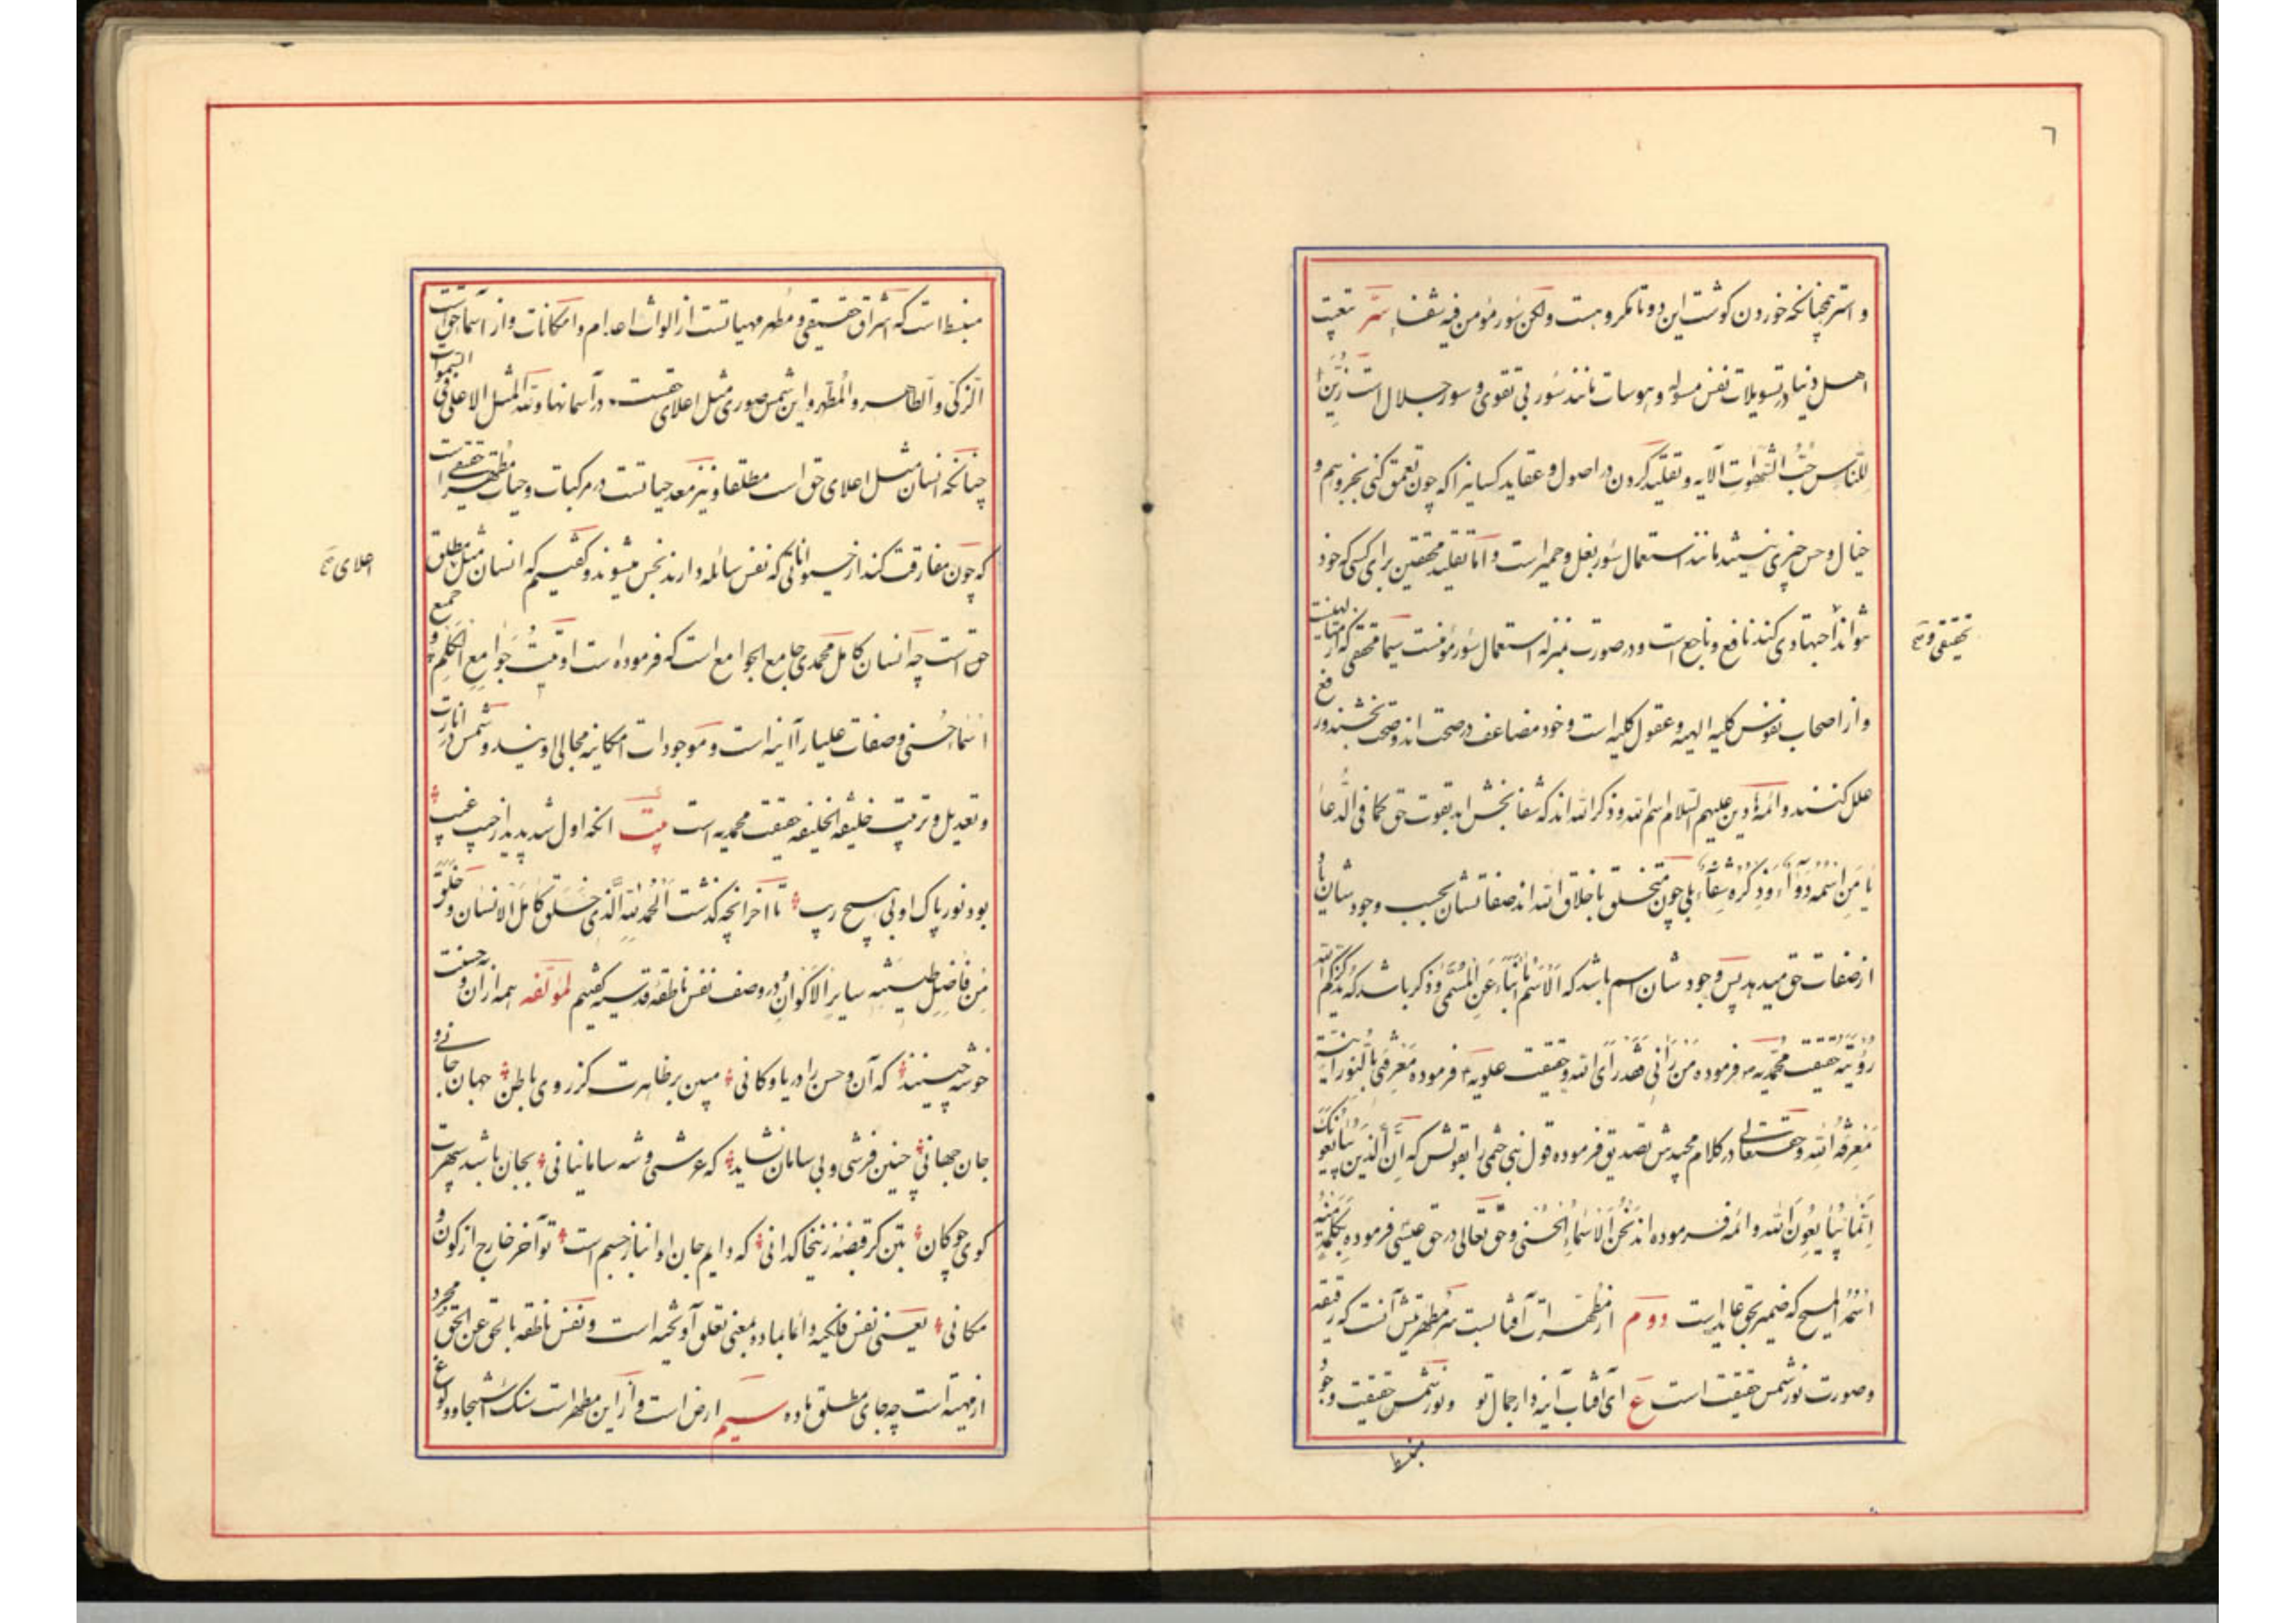 ٦
و استر همچنانکه خوردن کوشت این دو تا مکروهست ولکن سُور مؤمن فیه شفاء سّر تبعیت
اهل دنیا در تسویلات نفس مسوله و هوسات مانند سُور بی تقوی و سور جلال است زُیِّنَ
لِلنّاسِ حُبُّ الشَّهَواتِ الآیه و تقلید کردن در اصول و عقاید کسانیرا که چون تعمق کنی بجز وهم و
خیال و حس چیزی نیستند مانند استعمال سُور بغل و حمیر است و اما تقلید محققین برای کسی که خود
نتواند اجتهادی کند نافع و ناجع است و در صورت بمنزله استعمال سُور مؤمنست سیما محققی که از الهیین
تحقیقی و
و از اصحاب نفوس کلیه الهیه و عقول کلیه است و خود مضاعف در صحت اند و صحت بخشند و رفع
علل کنند و ائمه دین علیهم السلام اسم الله و ذکر الله اند که شفا بخش اند بقوت حق کما فی الدُّعا
یا مَنِ اسْمُهُ دَوآء وَ ذِکْرُهُ شِفآء بلی چون متخلق باخلاق الله اند صفاتشان بحسب وجودشان یاد
از صفات حق میدهد پس وجودشان اسم باشد که اَلْاِسْمُ اَنْبَاءَ عَنِ الْمُسَمّی و ذکر باشد که یذکرکم الله
رؤیته حقیقت محمدیه ص فرموده مَنْ رَآنی فَقَدْ رَأَی الله و حقیقت علویه ع فرموده مَعْرِفَتی بِالنّورانیّة
مَعْرِفَةُ اللهِ و حقتعالی در کلام مجیدش تصدیق فرموده قول نبی ختمی را بقولش که اِنَّ الَّذینَ یُبایِعونَکَ
اِنَّما یُبایِعُونَ الله و ائمه فرموده اند نَحْنُ الْاَسْماءُ الْحُسْنی و حق تعالی در حق عیسی فرموده بِکَلِمَةٍ مِنْهُ
اسْمُهُ الْمَسیح که ضمیر بحق عاید است دوم از مطهرات آفتابست سّر مطهریتش آنست که رقیقه
و صورت نور شمس حقیقت است ع ای آفتاب آینه دار جمال تو و نور شمس حقیقت وجود
منبسط
منبسط است که اشراق حقیقی و مطهر مهیاتست از الواث اعدام و امکانات و از اسماء حق است
الزکی و الطاهر و المطهر و این شمس صوری مثل اعلای حقست در آسمانها و لله المثل الاعلی فی السموات
چنانکه انسان مثل اعلای حق است مطلقا و نیز معد حیاتست در مرکبات و حیات مطهر حقیقی است
که چون مفارقت کند از حیواناتی که نفس سائله دارند نجس میشوند و کفتیم که انسان مثل مطلق
اعلای
حق است چه انسان کامل محمدی جامع الجوامع است که فرموده است اوتیت جَوامِعَ الْکَلِمِ و جمیع
اسماء حسنی و صفات علیا را آینه است و موجودات امکانیه مجالی اویند و شمس در انارت
و تعدیل و تربیت خلیفه الخلیفه حقیقت محمدیه است بیت انکه اول شد پدید از جیب غیب
بود نور پاک او بی هیچ ریب تا آخر انچه کذشت اَلْحَمْدُ لِلّهِ الَّذی خَلَقَ کامِلَ الْاِنْسانِ وَ خَلَقَ
مِنْ فاضِلِ طینَتِهِ سایِرَ الْاَکْوانِ در وصف نفس ناطقه قدسیه کفتیم لمؤلفه همه از آن و حسنت
خوشه چینند که آن و حسن را دریا و کانی مبین بر ظاهرت کز روی باطن جهان جانی و
جان جهانی چنین فرشی و بی سامان نشاید که عرشی و شه سامانیانی بجان باشد سپهرت
کوی چوکان بتن کر قبضه زینخاکدانی که دایم جان او انباز جسم است تو آخر خارج از کون و
مکانی یعنی نفس فلکیه دائما بماده بمعنی تعلق آویخته است و نفس ناطقه بالحق عن الحق مجرد
از مهیة است چه جای مطلق ماده سیم ارض است و از این مطهر است سنک اشجار و